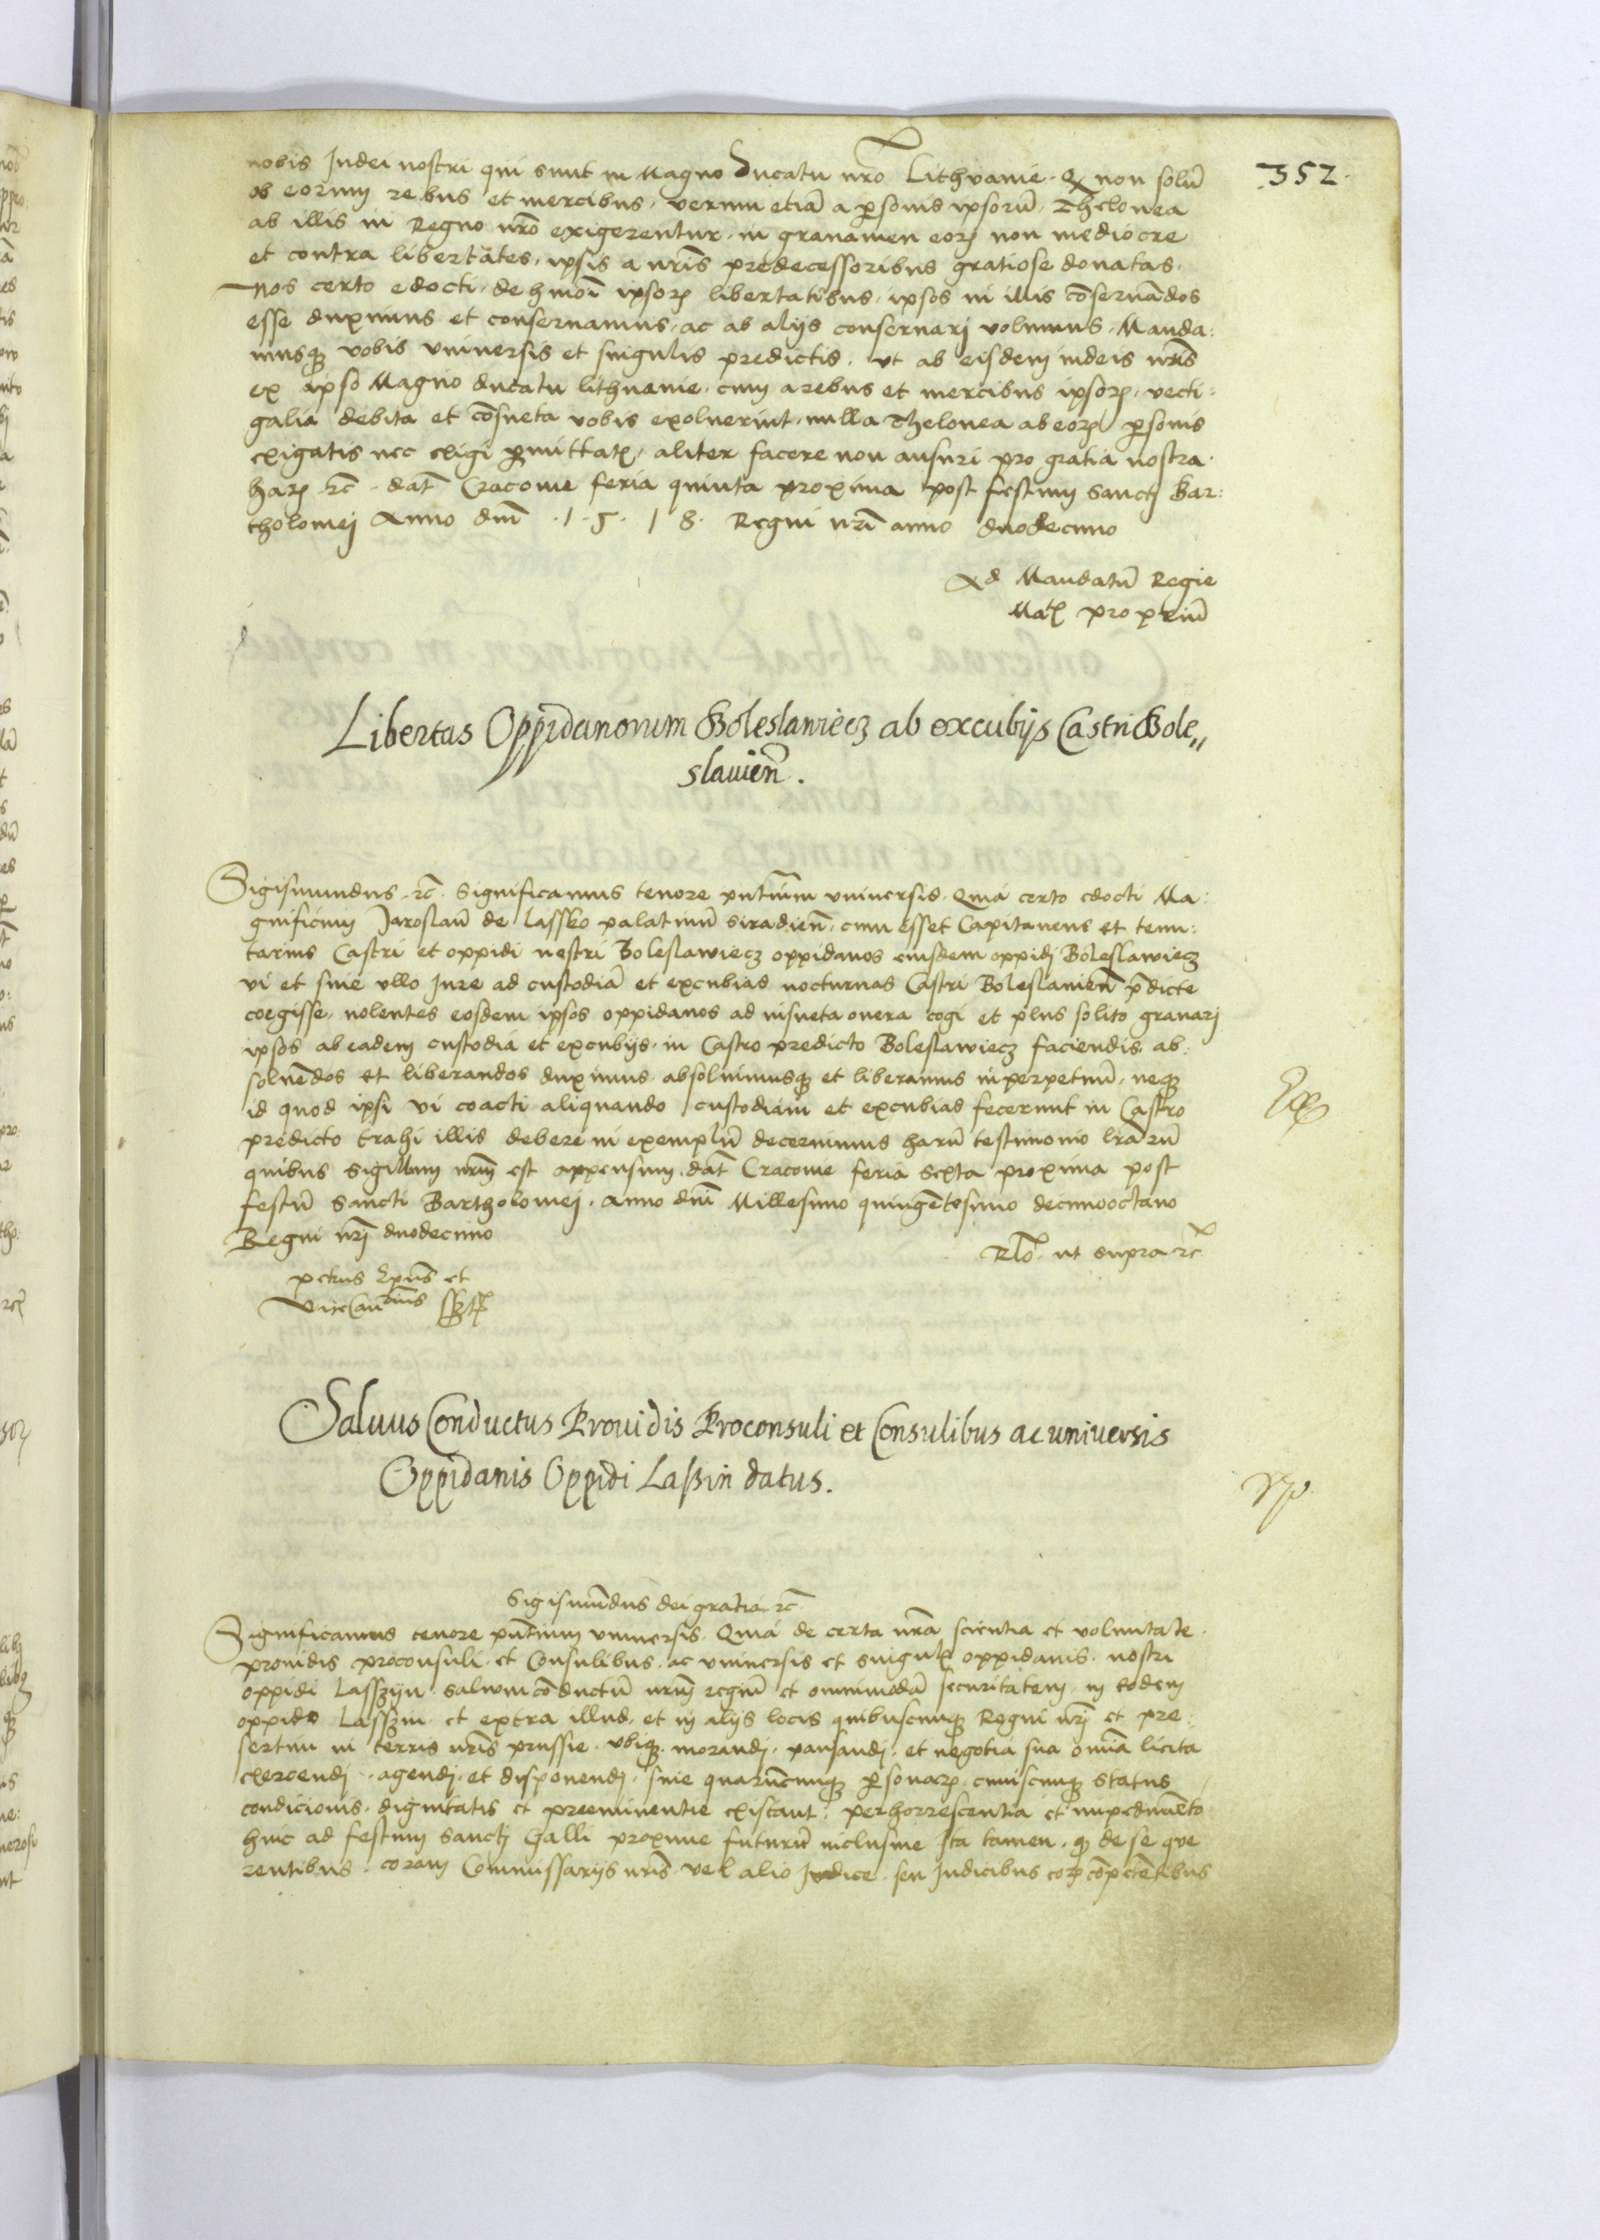 352.
nobis Judei nostri qui sunt in Magno Ducatu nrō Lithvanie. Q non solū
ob eorum rebus et mercibus, verum etiā a psonis ipsorū, Thelonea
ab illis in Regno nrō exigerentur, in gravamen eorz non mediocre
et contra libertates, ipsis a nrīs predecessoribus gratiose donatas.
Nos certo edocti, de hmōi ipsorz libertatibus, ipsos in illis cōservādos
esse duximus et conservamus, ac ab alijs conservarj volumus, Manda:
musqz vobis vniversis et singulis predictis, vt ab eisdem iudeis nrīs
ex ipso Magno ducatu lithuanie, cum a rebus et mercibus ipsorz, vecti:
galia debita et cōsueta vobis exoluerint, nulla Thelonea ab eorz psonis
exigatis nec exigi pmittatz, aliter facere non ausuri pro gratia nostra.
harz rc̄. dat̄ Cracouie feria quinta proxima post festum Sanctj Bar:
tholomej Anno dnī .1.5.1 8. Regni nrī anno duodecimo
Ad Mandatū Regie
Matz propriū
Libertas Oppidanorum Boleslawiecz ab excubijs Castri Bole„
slauien̄.
Sigismundus. rc̄. Significamus tenore pntium vniversis. Quia certo edocti Ma:
gnificum Jaroslaū de Lassko palatinū Siradien̄. cum esset Capitaneus et tenu:
tarius Castri et oppidi nostri Boleslawiecz oppidanos eiusdem oppidj Boleslawiecz
vi et sine vllo Jure ad custodiā et excubias nocturnas Castri Boleslauien̄ pdicte
coegisse, nolentes eosdem ipsos oppidanos ad insueta onera cogi et plus solito gravarj
ipsos ab eadem custodia et excubijs, in Castro predicto Boleslawiecz faciendis, ab:
soluēdos et liberandos duximus absoluimusqz et liberamus in perpetuū, neqz
id quod ipsi vi coacti aliquando custodiam et excubias fecerunt in Castro
predicto trahi illis debere in exemplū decernimus harū testimonio lrārū
quibus Sigillum nrūm est appensum. dat̄ Cracouie feria sexta proxima post
festū Sancti Bartholomej, Anno dnī Millesimo quingētesimo decimooctavo
Regni nrj duodecimo
Rlō. ut supra rc̄
petrus Epūs et
ViceCan
Saluus Conductus Prouidis Proconsuli et Consulibus ac uniuersis
Oppidanis Oppidi Laßin datus.
Sigismūdus dei gratia rc̄
Significamus tenore pntium vniversis. Quia de certa nrā scientia et voluntate.
prouidis proconsuli et Consulibus, ac vniversis et singulz oppidanis nostri
oppidi Lasszijn salvum cōductū nrūm regiū et omnimodā securitatem, in eodem
oppido Lasszin et extra illud, et in alijs locis quibuscumqz Regni nrj et pre:
sertim in terris nrīs prussie, vbiqz morandj, pausandj, et negotia sua omīa licita
exercendj, agendj, et disponendj, sine quarūcumqz psonarz, cuiuscumqz status
condicionis, dignitatis et preeminentie existant, perhorrescentia et impedimēto
hinc ad festum Sanctj Galli proxime futurū inclusiue Ita tamen, qz de se que
rentibus, coram Commissarijs nrīs vel alio Judice, seu Judicibus eorz cōpetētibus